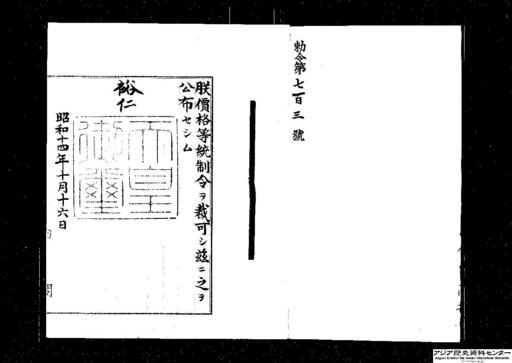 勅令第七百三號
朕價格等統制令ヲ裁可シ茲ニ之ヲ
公布セシム
裕仁
天皇御璽
昭和十四年十月十六日
内閣
アジア歴史資料センター
Japan Center for Asian Historical Records